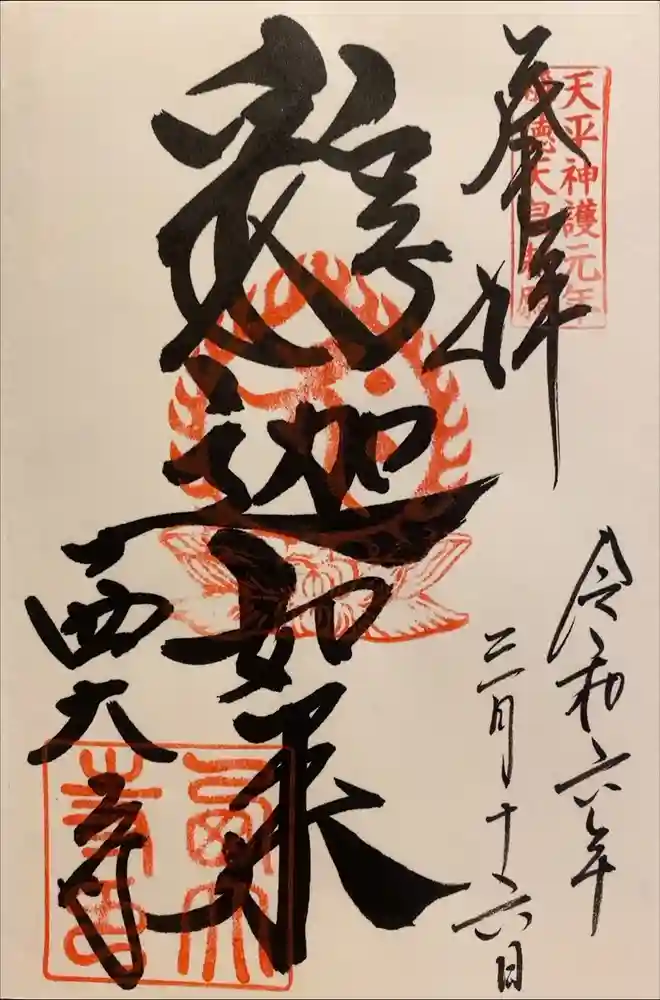 奉拝
天平神護元年
称徳天皇勅願
令和六年
三月十六日
釋迦如来
西大寺